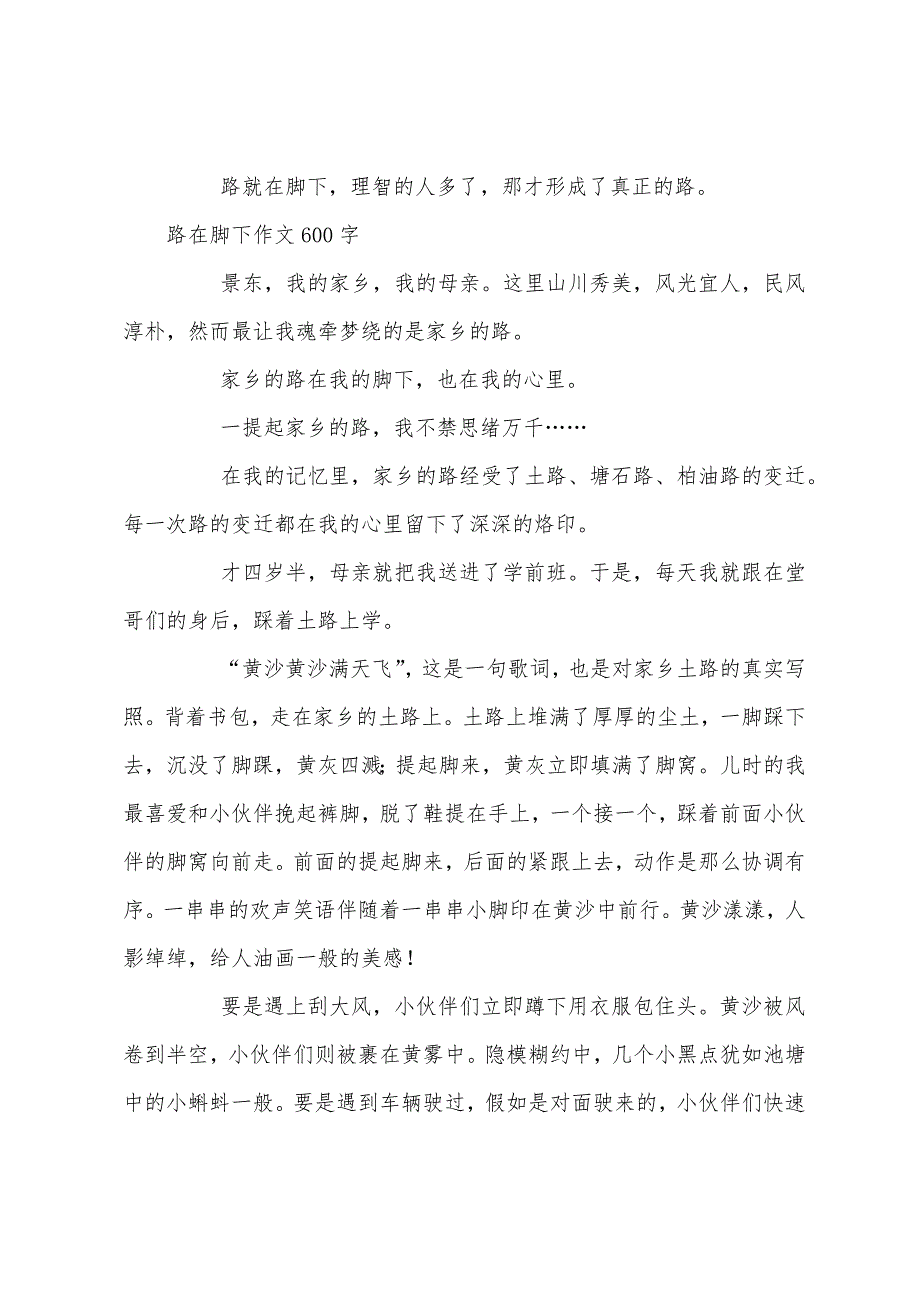 路就在脚下，理智的人多了，那才形成了真正的路。
路在脚下作文 600 字
景东，我的家乡，我的母亲。这里山川秀美，风光宜人，民风
淳朴，然而最让我魂牵梦绕的是家乡的路。
家乡的路在我的脚下，也在我的心里。
一提起家乡的路，我不禁思绪万千……
在我的记忆里，家乡的路经受了土路、塘石路、柏油路的变迁。
每一次路的变迁都在我的心里留下了深深的烙印。
才四岁半，母亲就把我送进了学前班。于是，每天我就跟在堂
哥们的身后，踩着土路上学。
“黄沙黄沙满天飞”，这是一句歌词，也是对家乡土路的真实写
照。背着书包，走在家乡的土路上。土路上堆满了厚厚的尘土，一脚踩下
去，沉没了脚踝，黄灰四溅；提起脚来，黄灰立即填满了脚窝。儿时的我
最喜爱和小伙伴挽起裤脚，脱了鞋提在手上，一个接一个，踩着前面小伙
伴的脚窝向前走。前面的提起脚来，后面的紧跟上去，动作是那么协调有
序。一串串的欢声笑语伴随着一串串小脚印在黄沙中前行。黄沙漾漾，人
影绰绰，给人油画一般的美感！
要是遇上刮大风，小伙伴们立即蹲下用衣服包住头。黄沙被风
卷到半空，小伙伴们则被裹在黄雾中。隐模糊约中，几个小黑点犹如池塘
中的小蝌蚪一般。要是遇到车辆驶过，假如是对面驶来的，小伙伴们快速